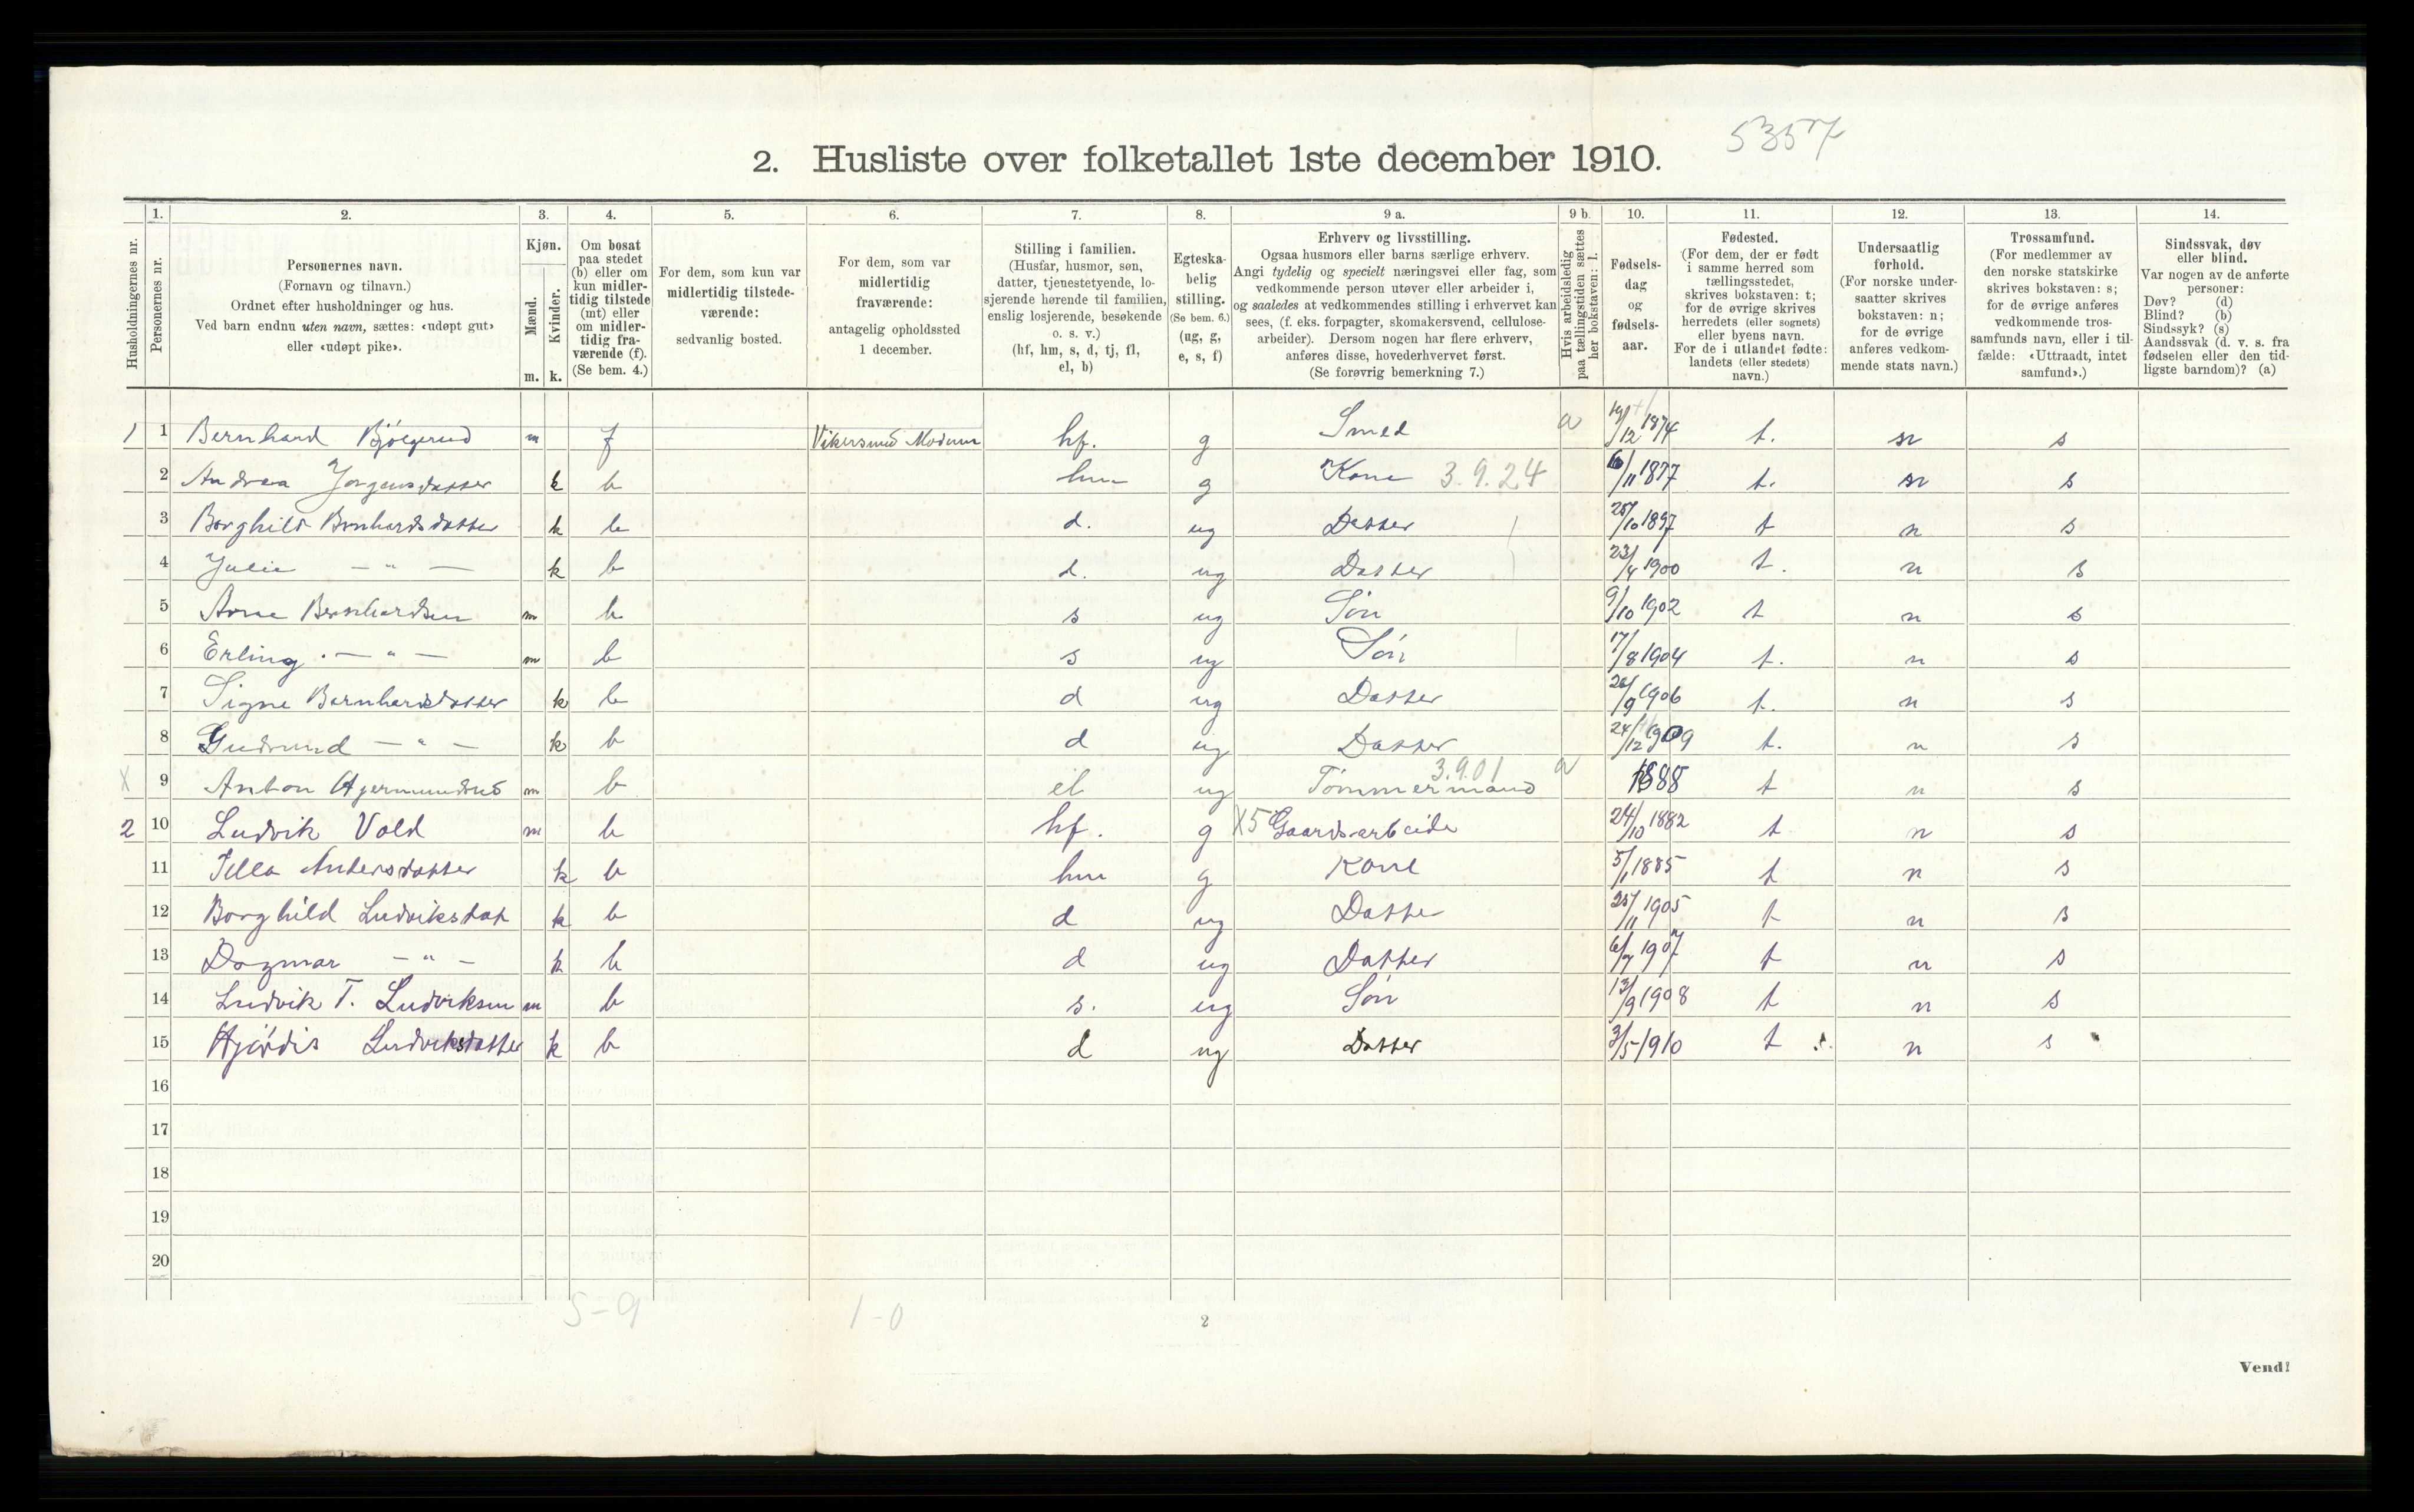 5357
2. Husliste over folketallet 1ste december 1910.
Husholdningernes nr.
1. Personernes nr.
2. Personernes navn. (Fornavn og tilnavn.) Ordnet efter husholdninger og hus. Ved barn endnu uten navn, sættes: «udøpt gut» eller «udøpt pike».
3. Kjøn. Mænd. m. Kvinder. k.
4. Om bosat paa stedet (b) eller om kun midlertidig tilstede (mt) eller om midlertidig fraværende (f). (Se bem. 4.)
5. For dem, som kun var midlertidig tilstedeværende: sedvanlig bosted.
6. For dem, som var midlertidig fraværende: antagelig opholdssted 1 december.
7. Stilling i familien. (Husfar, husmor, søn, datter, tjenestetyende, losjerende hørende til familien, enslig losjerende, besøkende o. s. v.) (hf, hm, s, d, tj, fl, el, b)
8. Egteskabelig stilling. (Se bem. 6.) (ug, g, e, s, f)
9 a. Erhverv og livsstilling. Ogsaa husmors eller barns særlige erhverv. Angi tydelig og specielt næringsvei eller fag, som vedkommende person utøver eller arbeider i, og saaledes at vedkommendes stilling i erhvervet kan sees, (f. eks. forpagter, skomakersvend, cellulosearbeider). Dersom nogen har flere erhverv, anføres disse, hovederhvervet først. (Se forøvrig bemerkning 7.)
9 b. Hvis arbeidsledig paa tællingstiden sættes her bokstaven: l.
10. Fødselsdag og fødselsaar.
11. Fødested. (For dem, der er født i samme herred som tællingsstedet, skrives bokstaven: t; for de øvrige skrives herredets (eller sognets) eller byens navn. For de i utlandet fødte: landets (eller stedets) navn.)
12. Undersaatlig forhold. (For norske undersaatter skrives bokstaven: n; for de øvrige anføres vedkommende stats navn.)
13. Trossamfund. (For medlemmer av den norske statskirke skrives bokstaven: s; for de øvrige anføres vedkommende trossamfunds navn, eller i tilfælde: «Uttraadt, intet samfund».)
14. Sindssvak, døv eller blind. Var nogen av de anførte personer: Døv? (d) Blind? (b) Sindssyk? (s) Aandssvak (d. v. s. fra fødselen eller den tidligste barndom)? (a)
1 1 Bernhard m f Vikersund Modum hf. g Smed a 19/12 1874 t. n s
2 Andrea Jørgensdatter k b hm g Kone 3.9.24 6/11 1877 t. n s
3 Borghild Bernhardsdatter k b d. ug Datter 25/10 1897 t n s
4 Julie — " — k b d. ug Datter 23/4 1900 t. n s
5 Arne Bernhardsen m b s ug Søn 9/10 1902 t n s
6 Erling — " — m b s ug Søn 17/8 1904 t. n s
7 Signe Bernhardsdatter k b d ug Datter 26/9 1906 t. n s
8 Gudrund — " — k b d ug Datter 24/12 1909 t. n s
X 9 Anton m b el ug Tømmermand 3.9.01 a 1888 t n s
2 10 Ludvik Vold m b hf. g X5 Gaardsarbeide 24/10 1882 t n s
11 Andersdatter k b hm g Kone 5/1 1885 t n s
12 Borghild Ludviksdat k b d ug Datter 25/11 1905 t n s
13 Dagmar — " — k b d ug Datter 6/7 1907 t n s
14 Ludvik T. Ludviksen m b s. ug Søn 13/9 1908 t n s
15 Hjørdis Ludviksdatter k b d ug Datter 3/5 1910 t n s
16
17
18
19
20
5-9 1-0
2
Vend!